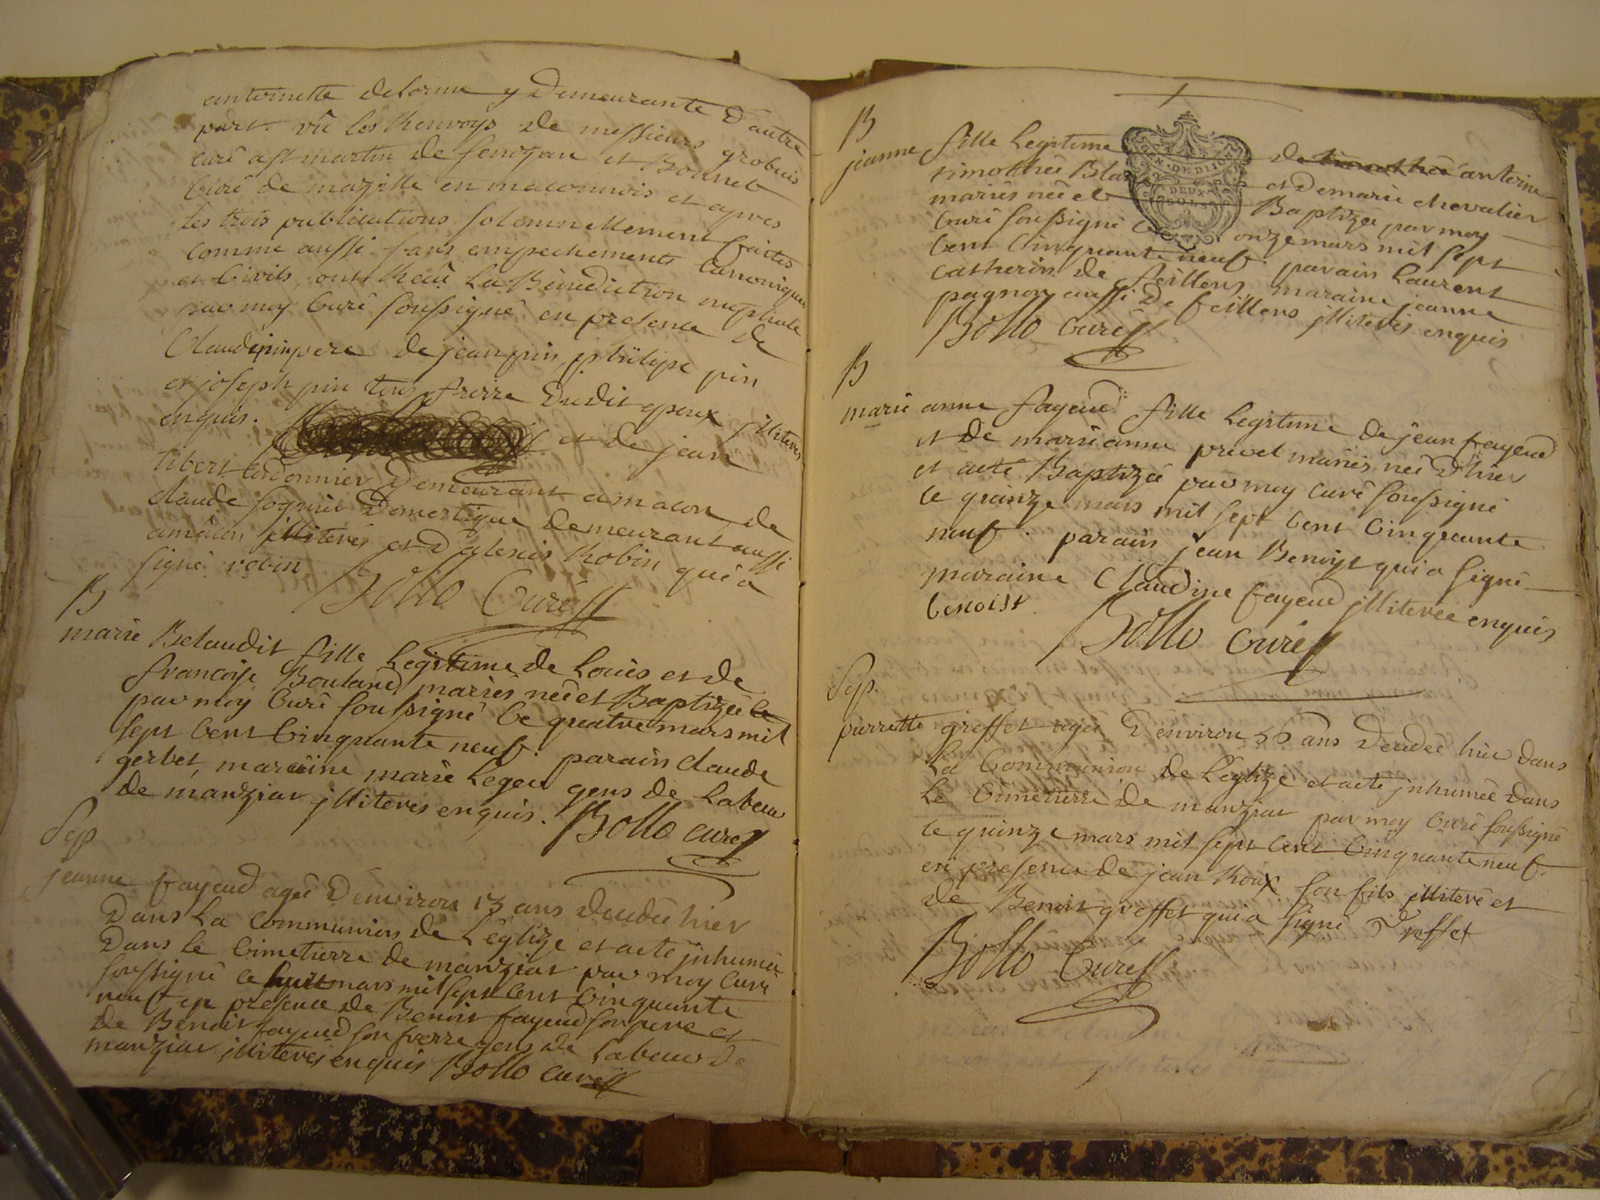 antoinette delorme y Demeurante D'autre
part. vû les Renvoys de messieurs grobuis
curé a st martin de senozan et Bonnet
Curé de mazille en maconnois et apres
les trois publications solemnellement faites
comme aussi sans empechements Canoniques
et Civils, ont Recû La Benediction nuptiale
par moy Curé soussigné en presence de
Claude pin pere de jean pin, philipe pin
et joseph pin tous frerre Dudit epoux jlliterés
enquis. et de jean
tibert Cordonnier Demeurant a macon, de
claude Domestique Demeurant aussi
a mâcon jlliterés et D'alexis Robin qui a
signé robin
Bollo Curé
B
marie Belaudit fille Legitime de Louis et de
françoise Bouland mariés née et Baptizée
par moy Curé soussigné Ce quatre mars mil
sept Cent Cinquante neuf. parain claude
gerbet, maraine marie Legeu gens de Labeur
de manziat jlliterés enquis. Bollo curé
Sep
jeanne fayeud ageé D'environ 13 ans Decedée hier
Dans La communion de L'eglize et acté jnhumée
Dans le Cimetierre de manziat par moy Curé
soussigné ce huit mars mil sept Cent Cinquante
neuf en presence de Benoit fayeud son pere et
de Benoit fayeud son frerre gens de Labeur de
manziat jlliterés enquis Bollo curé
B
jeanne fille Legitime de antoine
timothée Bla et De marie chevalier
mariés née et Baptizée par moy
Curé soussigné Ce onze mars mil sept
Cent Cinquante neuf. parain Laurent
Catherin de feillens, maraine jeanne
pagnon aussi de feillens jlliterés enquis
Bollo Curé
B
marie anne fayeud fille Legitime de jean fayeud
et de marie anne privel mariés née d'hier
et acté Baptizée par moy curé soussigné
ce quinze mars mil sept Cent Cinquante
neuf. parain jean Benoist qui a signé
maraine Claudine fayeud jlliterée enquis
benoist
Bollo Curé
Sep.
pierrette greffet ageé D'environ 55 ans Decedeé hier dans
La Communion de L'eglize et acté jnhumée dans
Le Cimetierre de manziat par moy Curé soussigné
ce quinze mars mil sept Cent Cinquante neuf.
en presence de jean Roux son fils jlliteré et
de Benoit greffet qui a signé greffet
Bollo Curé